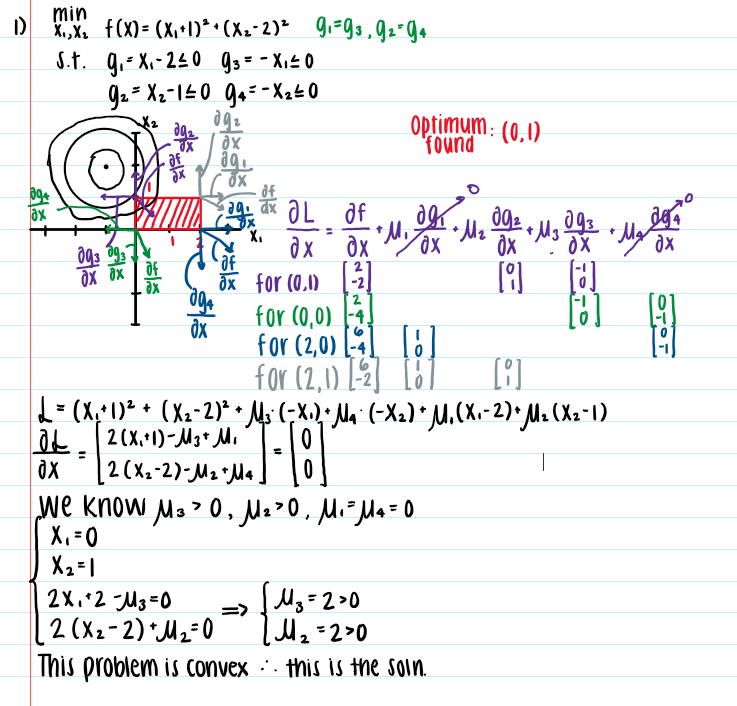 1) min x₁,x₂ f(x) = (x₁+1)² + (x₂-2)² g₁=g₃, g₂=g₄
s.t. g₁ = x₁-2≤0 g₃ = -x₁≤0
g₂ = x₂-1≤0 g₄ = -x₂≤0
x₂
∂g₂/∂x
∂g₂/∂x
∂f/∂x
∂g₁/∂x
∂f/dx
1
Optimum found : (0,1)
∂g₄/∂x
∂g₁/∂x
x₁
1
2
∂g₃/∂x
∂g₃/∂x
∂f/∂x
∂f/∂x
∂g₄/∂x
∂L/∂x = ∂f/∂x + μ₁ ∂g₁/∂x 0 + μ₂ ∂g₂/∂x + μ₃ ∂g₃/∂x + μ₄ ∂g₄/∂x 0
for (0,1) [2 -2] [0 1] [-1 0]
for (0,0) [2 -4] [-1 0] [0 -1]
for (2,0) [6 -4] [1 0] [0 -1]
for (2,1) [6 -2] [1 0] [0 1]
L = (x₁+1)² + (x₂-2)² + μ₃·(-x₁) + μ₄·(-x₂) + μ₁(x₁-2) + μ₂(x₂-1)
∂L/∂x = [2(x₁+1)-μ₃+μ₁ 2(x₂-2)-μ₂+μ₄] = [0 0]
We know μ₃>0, μ₂>0, μ₁=μ₄=0
x₁=0
x₂=1
2x₁+2-μ₃=0 ⟹ μ₃=2>0
2(x₂-2)+μ₂=0 μ₂=2>0
This problem is convex ∴ this is the soln.